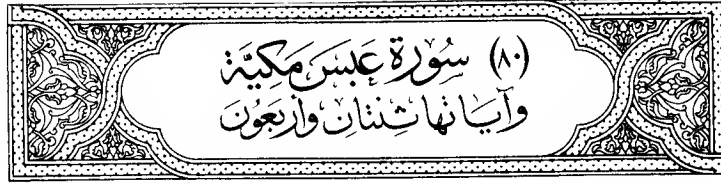 (٨٠) سُورَة عَبَسَ مَكِيَّة
وَآيَاتهَا ثِنْتَان وَأَربَعُونَ